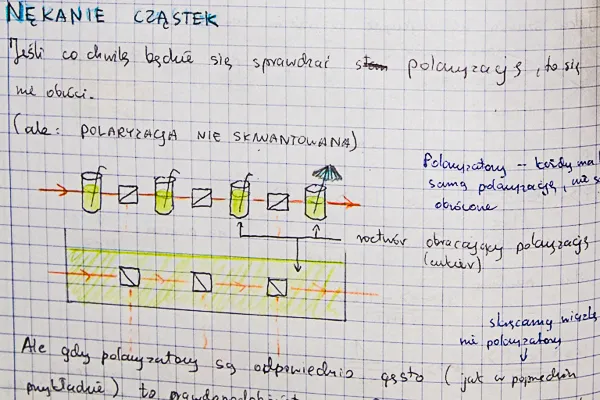 NĘKANIE CZĄSTEK
Jeśli co chwilę będzie się sprawdzać polaryzację, to się
nie obróci.
(ale: POLARYZACJA NIE SKWANTOWANA)
Polaryzatory -- każdy ma
samą polaryzację, nie s
obrócone
roztwór obracający polaryzację
(cukier)
skręcamy wiązkę
nie polaryzatory
Ale gdy polaryzatory są odpowiednio gęsto (jak w poprzednim
przykładzie) to